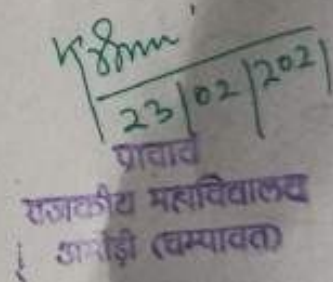 23/02/2021
प्राचार्य
राजकीय महाविद्यालय
अमोड़ी (चम्पावत)